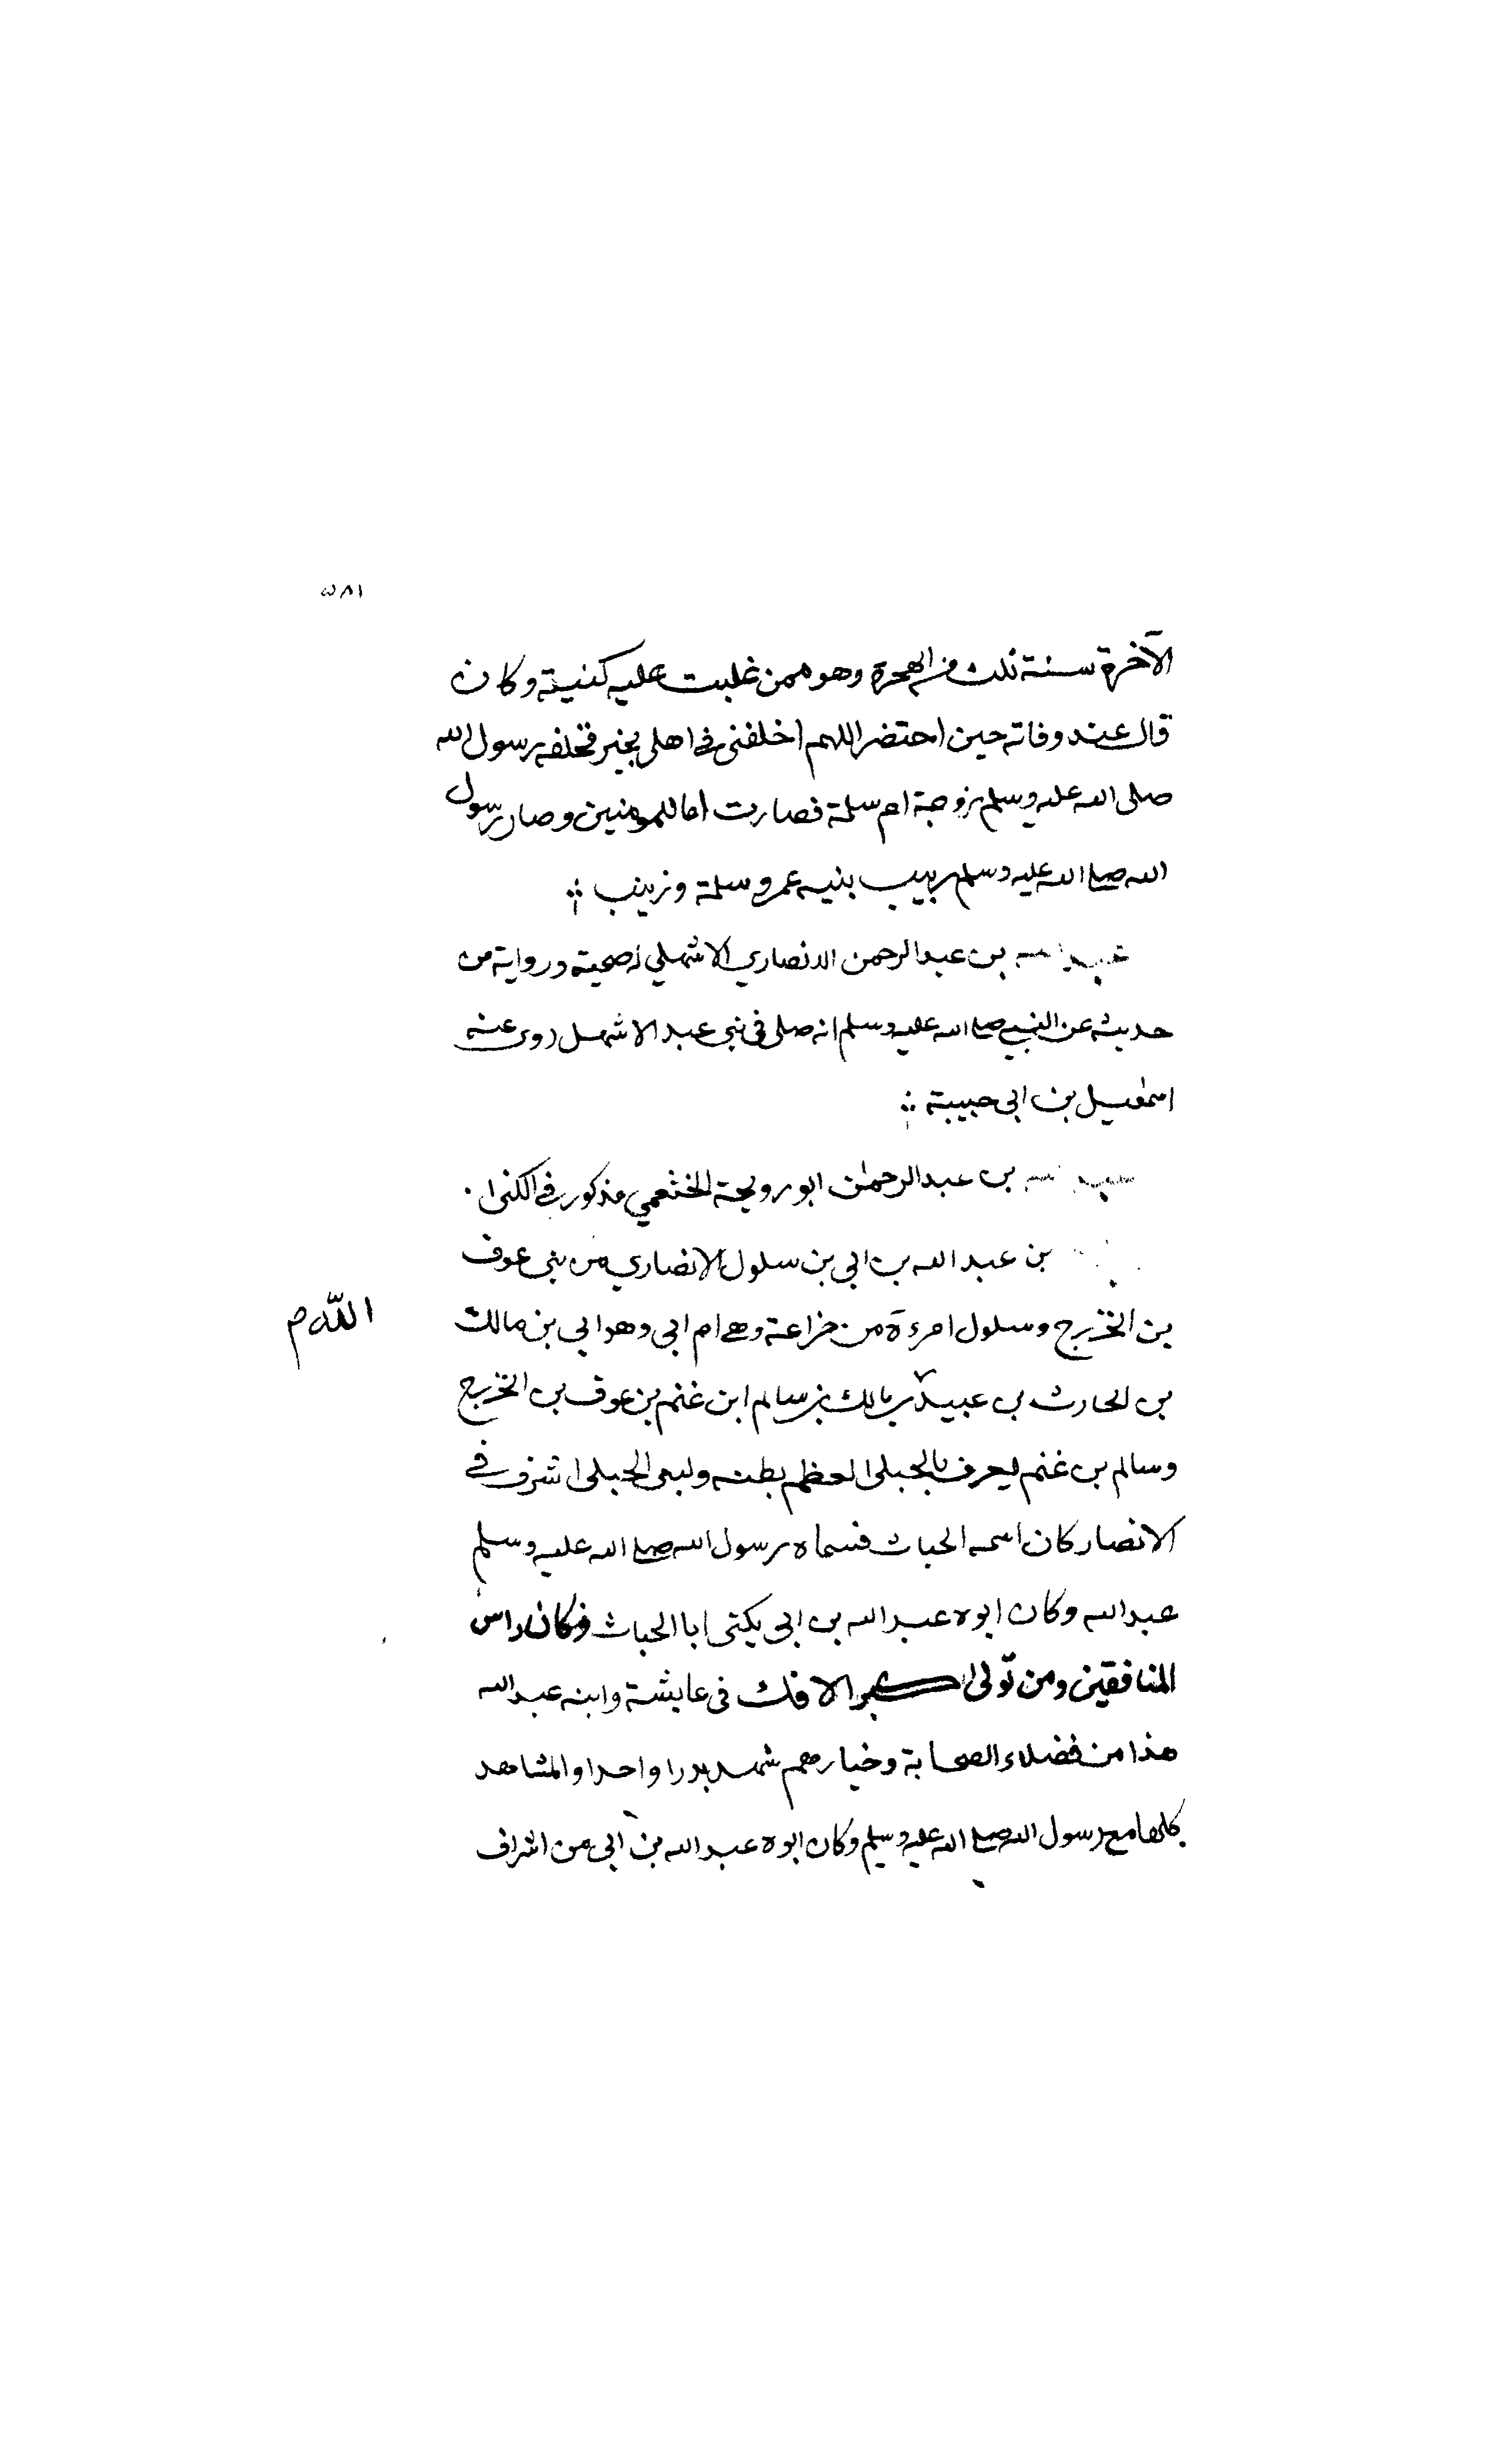 ٥٨١
الآخرة سنة ثلث من الهجرة وهو ممن غلبت عليه كنيته وكان
قال عند وفاته حين احتضر اللهم اخلفني في اهلي بخير فخلفه رسول الله
صلى الله عليه وسلم زوجة ام سلمة فصارت اما للمومنين وصار رسول
الله صلى الله عليه وسلم ربيب بنيه عمر وسلمة وزينب
عبد الله بن عبد الرحمن الانصاري الاشهلي له صحبة ورواية من
حديثه عن النبي صلى الله عليه وسلم انه صلى في بني عبد الاشهل روى عنه
اسمعيل بن ابي حبيبة
بن عبد الرحمن ابو رويحة الخثعمي مذكور في الكنى
بن عبد الله بن ابي بن سلول الانصاري من بني عوف
بن الخزرج وسلول امرءة من خزاعة وهي ام ابي وهو ابي بن مالك
الله م
بن الحارث بن عبيد بن مالك بن سالم ابن غنم بن عوف بن الخزرج
وسالم بن غنم يعرف بالحبلى لعظم بطنه ولبني الحبلى شرف في
الانصار كان اسمه الحباب فسماه رسول الله صلى الله عليه وسلم
عبد الله وكان ابوه عبد الله بن ابي يكنى ابا الحباب وكان راس
المنافقين ومن تولى كبر الافك في عايشة وابنه عبد الله
هذا من فضلاء الصحابة وخيارهم شهد بدرا واحدا والمشاهد
كلها مع رسول الله صلى الله عليه وسلم وكان ابوه عبد الله بن ابي من اشراف